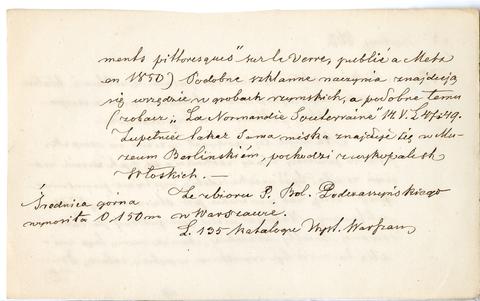 ments pittoresques" sur le Verre, publié a Metz
en 1850) Podobne szklanne naczynia znajdują
się wszędzie w grobach rzymskich, a podobne temu
(zobacz „La Normandie Souterraine" Pl. V.
Zupełnie taka sama miska znajduje się w Mu-
zeum Berlińskiém, pochodzi z wykopalisk
Włoskich. —
Ze zbioru P. Bol. Podczaszyńskiego
w Warszawie.
L. 135 Katalogu Wyst. Warszaw
Średnica górna
wynosiła 0,150 m